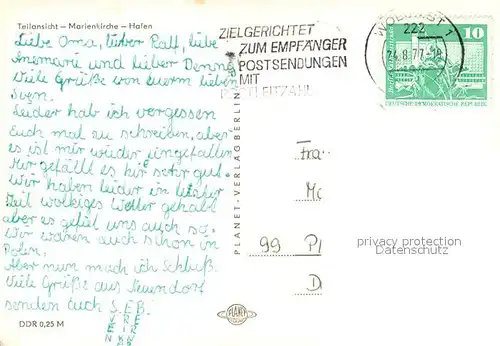 Teilansicht – Marienkirche – Hafen
Liebe Oma, lieber Ralf, liebe
Annemarie und lieber Denny
Viele Grüße von eurem lieben
Sven.
Leider hab ich vergessen
Euch mal zu schreiben, aber
es ist mir wieder eingefallen.
Mir gefällt es hir sehr gut
Wir haben leider in letzter
Zeit wolkiges Wetter gehabt
aber es gefält uns auch so.
Wir waren auch schon in
Polen.
Aber nun mach ich Schluß.
Viele Grüße aus Neuendorf
senden euch S. E B.
VEN
DDR 0,25 M
ZIELGERICHTET
ZUM EMPFÄNGER
POSTSENDUNGEN
MIT
POSTLEITZAHL
WOLGAST 1
222
24.8.77-18
10
DEUTSCHE DEMOKRATISCHE REPUBLIK
PLANET-VERLAG BERLIN
PLANET
Frau
Mo
99 Pl
D
privacy protection
Datenschutz